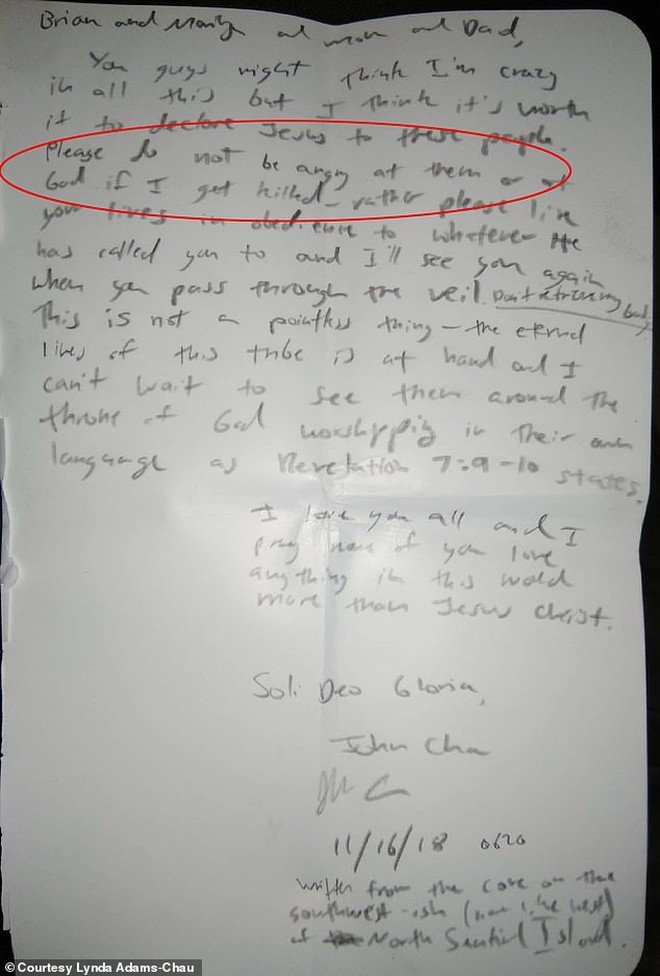 Brian and Marilyn and mom and Dad,
You guys might think I'm crazy
in all this but I think it's worth
it to declare Jesus to these people.
Please do not be angry at them or at
God if I get killed - rather please live
your lives in obedience to whatever He
has called you to and I'll see you again
when you pass through the veil. Don't retrieve my body.
This is not a pointless thing - the eternal
lives of this tribe is at hand and I
can't wait to see them around the
throne of God worshipping in their own
language as Revelation 7:9-10 states.
I love you all and I
pray none of you love
anything in this world
more than Jesus Christ.
Soli Deo Gloria,
John Chau
11/16/18 0620
written from the cove on the
southwest-ish (
of North Sentinel Island.
©Courtesy Lynda Adams-Chau